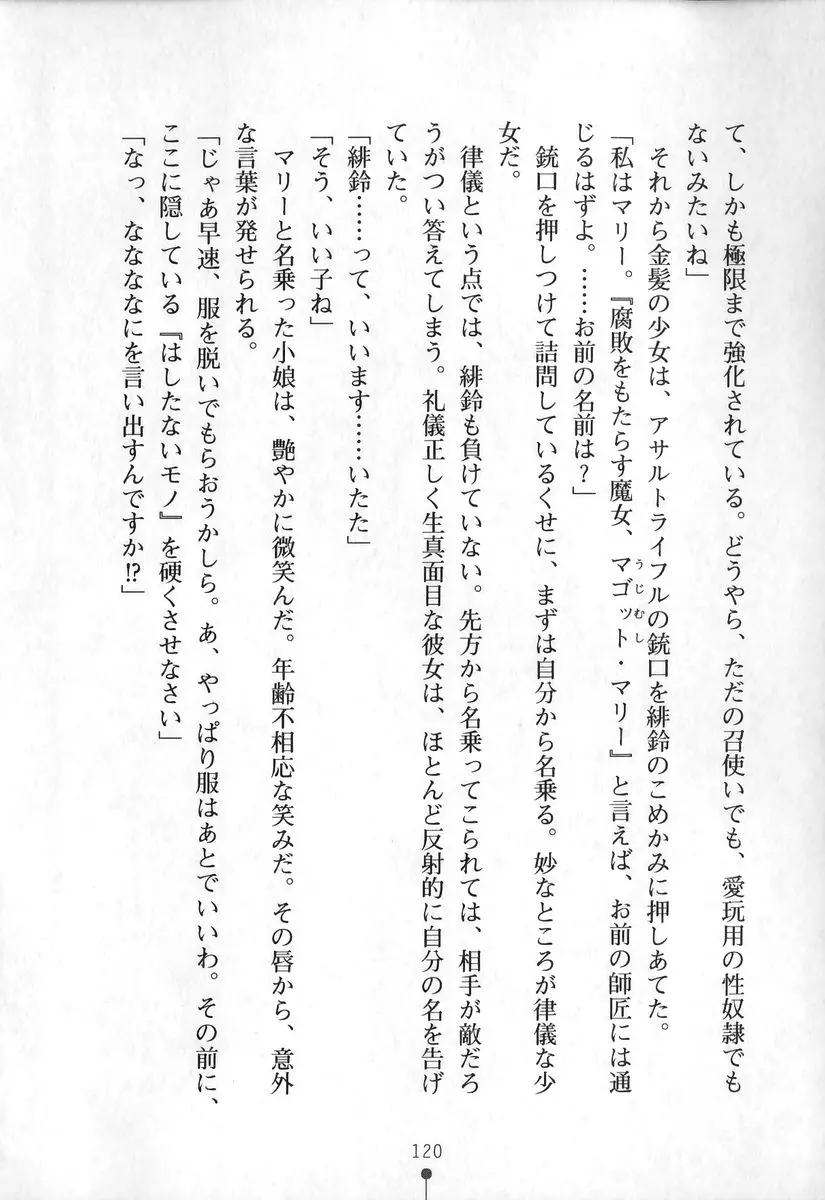 て、しかも極限まで強化されている。どうやら、ただの召使いでも、愛玩用の性奴隷でも
ないみたいね」
それから金髪の少女は、アサルトライフルの銃口を緋鈴のこめかみに押しあてた。
「私はマリー。『腐敗をもたらす魔女、マゴット・マリー』と言えば、お前の師匠には通
うじむし
じるはずよ。……お前の名前は?」
銃口を押しつけて詰問しているくせに、まずは自分から名乗る。妙なところが律儀な少
女だ。
律儀という点では、緋鈴も負けていない。先方から名乗ってこられては、相手が敵だろ
うがつい答えてしまう。礼儀正しく生真面目な彼女は、ほとんど反射的に自分の名を告げ
ていた。
「緋鈴……って、いいます……いたた」
「そう、いい子ね」
マリーと名乗った小娘は、艶やかに微笑んだ。年齢不相応な笑みだ。その唇から、意外
な言葉が発せられる。
「じゃあ早速、服を脱いでもらおうかしら。あ、やっぱり服はあとでいいわ。その前に、
ここに隠している『はしたないモノ』を硬くさせなさい」
「なっ、なななにを言い出すんですか!?」
120